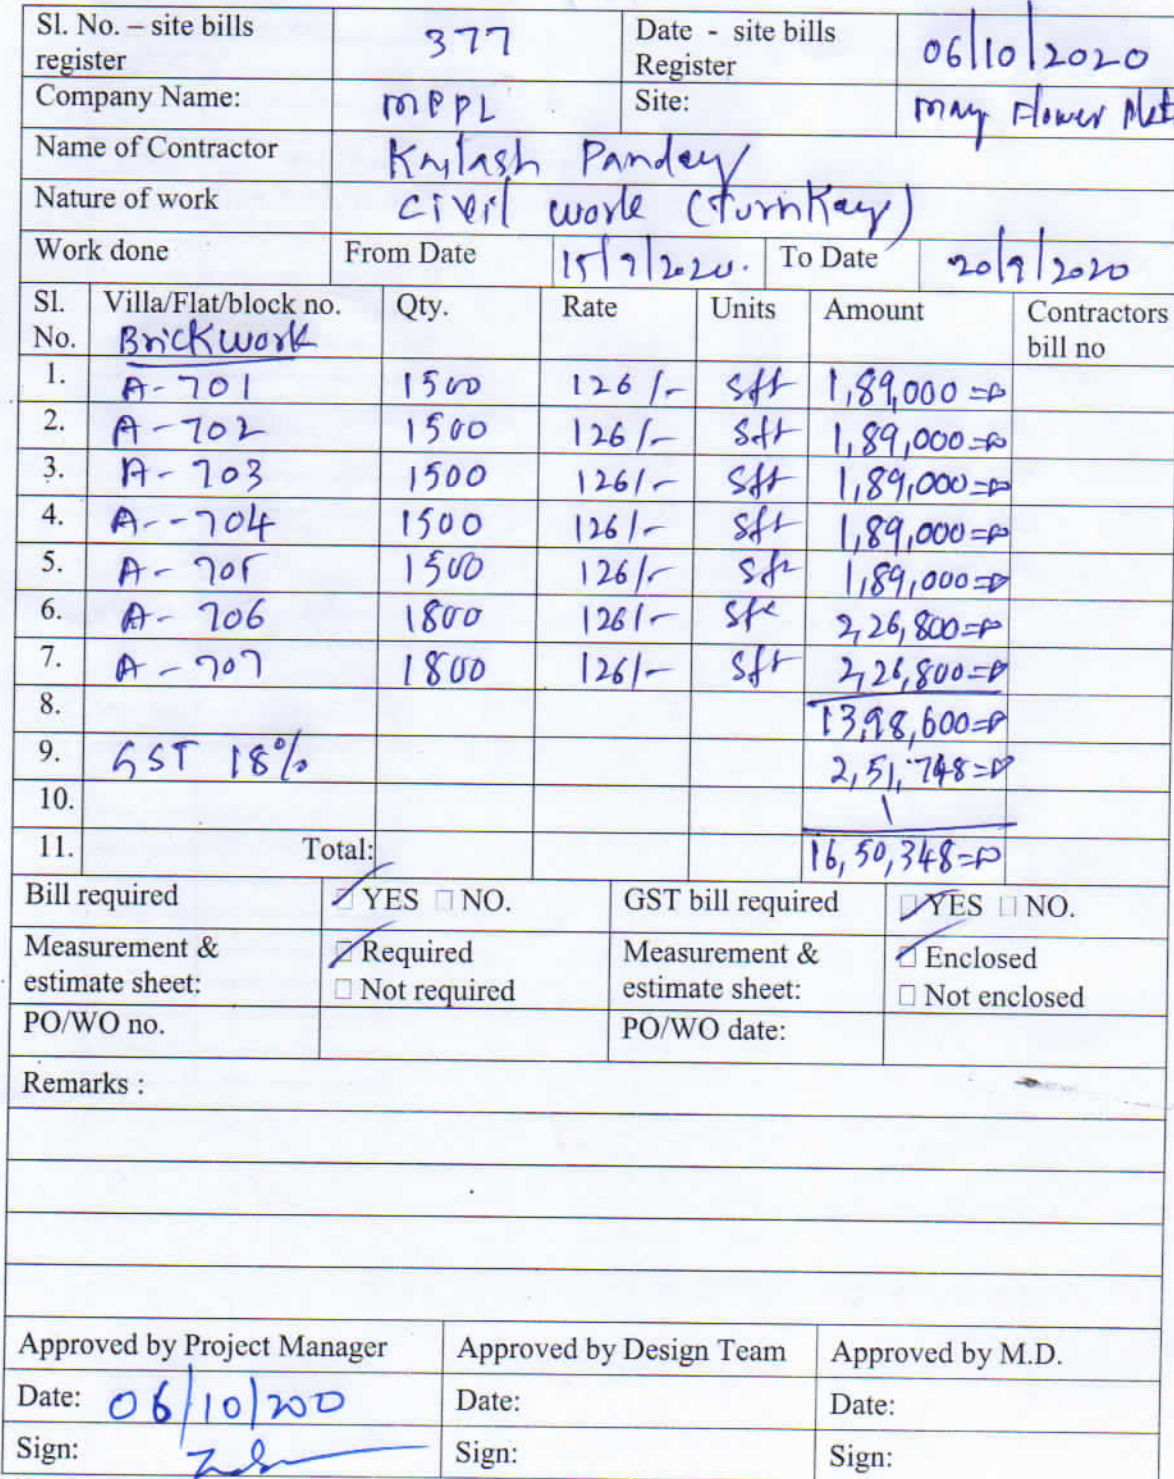 Sl. No. – site bills register 377 Date - site bills Register 06/10/2020
Company Name: MPPL Site: May Flower
Name of Contractor Kailash Pandey
Nature of work Civil work (turnKay)
Work done From Date 15/9/2020. To Date 20/9/2020
Sl. No. Villa/Flat/block no. Qty. Rate Units Amount Contractors bill no
BrickWork
1. A-701 1500 126/- sft 1,89,000=00
2. A-702 1500 126/- sft 1,89,000=00
3. A-703 1500 126/- sft 1,89,000=00
4. A--704 1500 126/- sft 1,89,000=00
5. A-705 1500 126/- sft 1,89,000=00
6. A-706 1800 126/- sft 2,26,800=00
7. A-707 1800 126/- sft 2,26,800=00
8. 13,98,600=00
9. GST 18% 2,51,748=00
10.
11. Total: 16,50,348=00
Bill required YES NO. GST bill required YES NO.
Measurement & estimate sheet: Required Not required Measurement & estimate sheet: Enclosed Not enclosed
PO/WO no. PO/WO date:
Remarks :
Approved by Project Manager Approved by Design Team Approved by M.D.
Date: 06/10/200 Date: Date:
Sign: Sign: Sign: